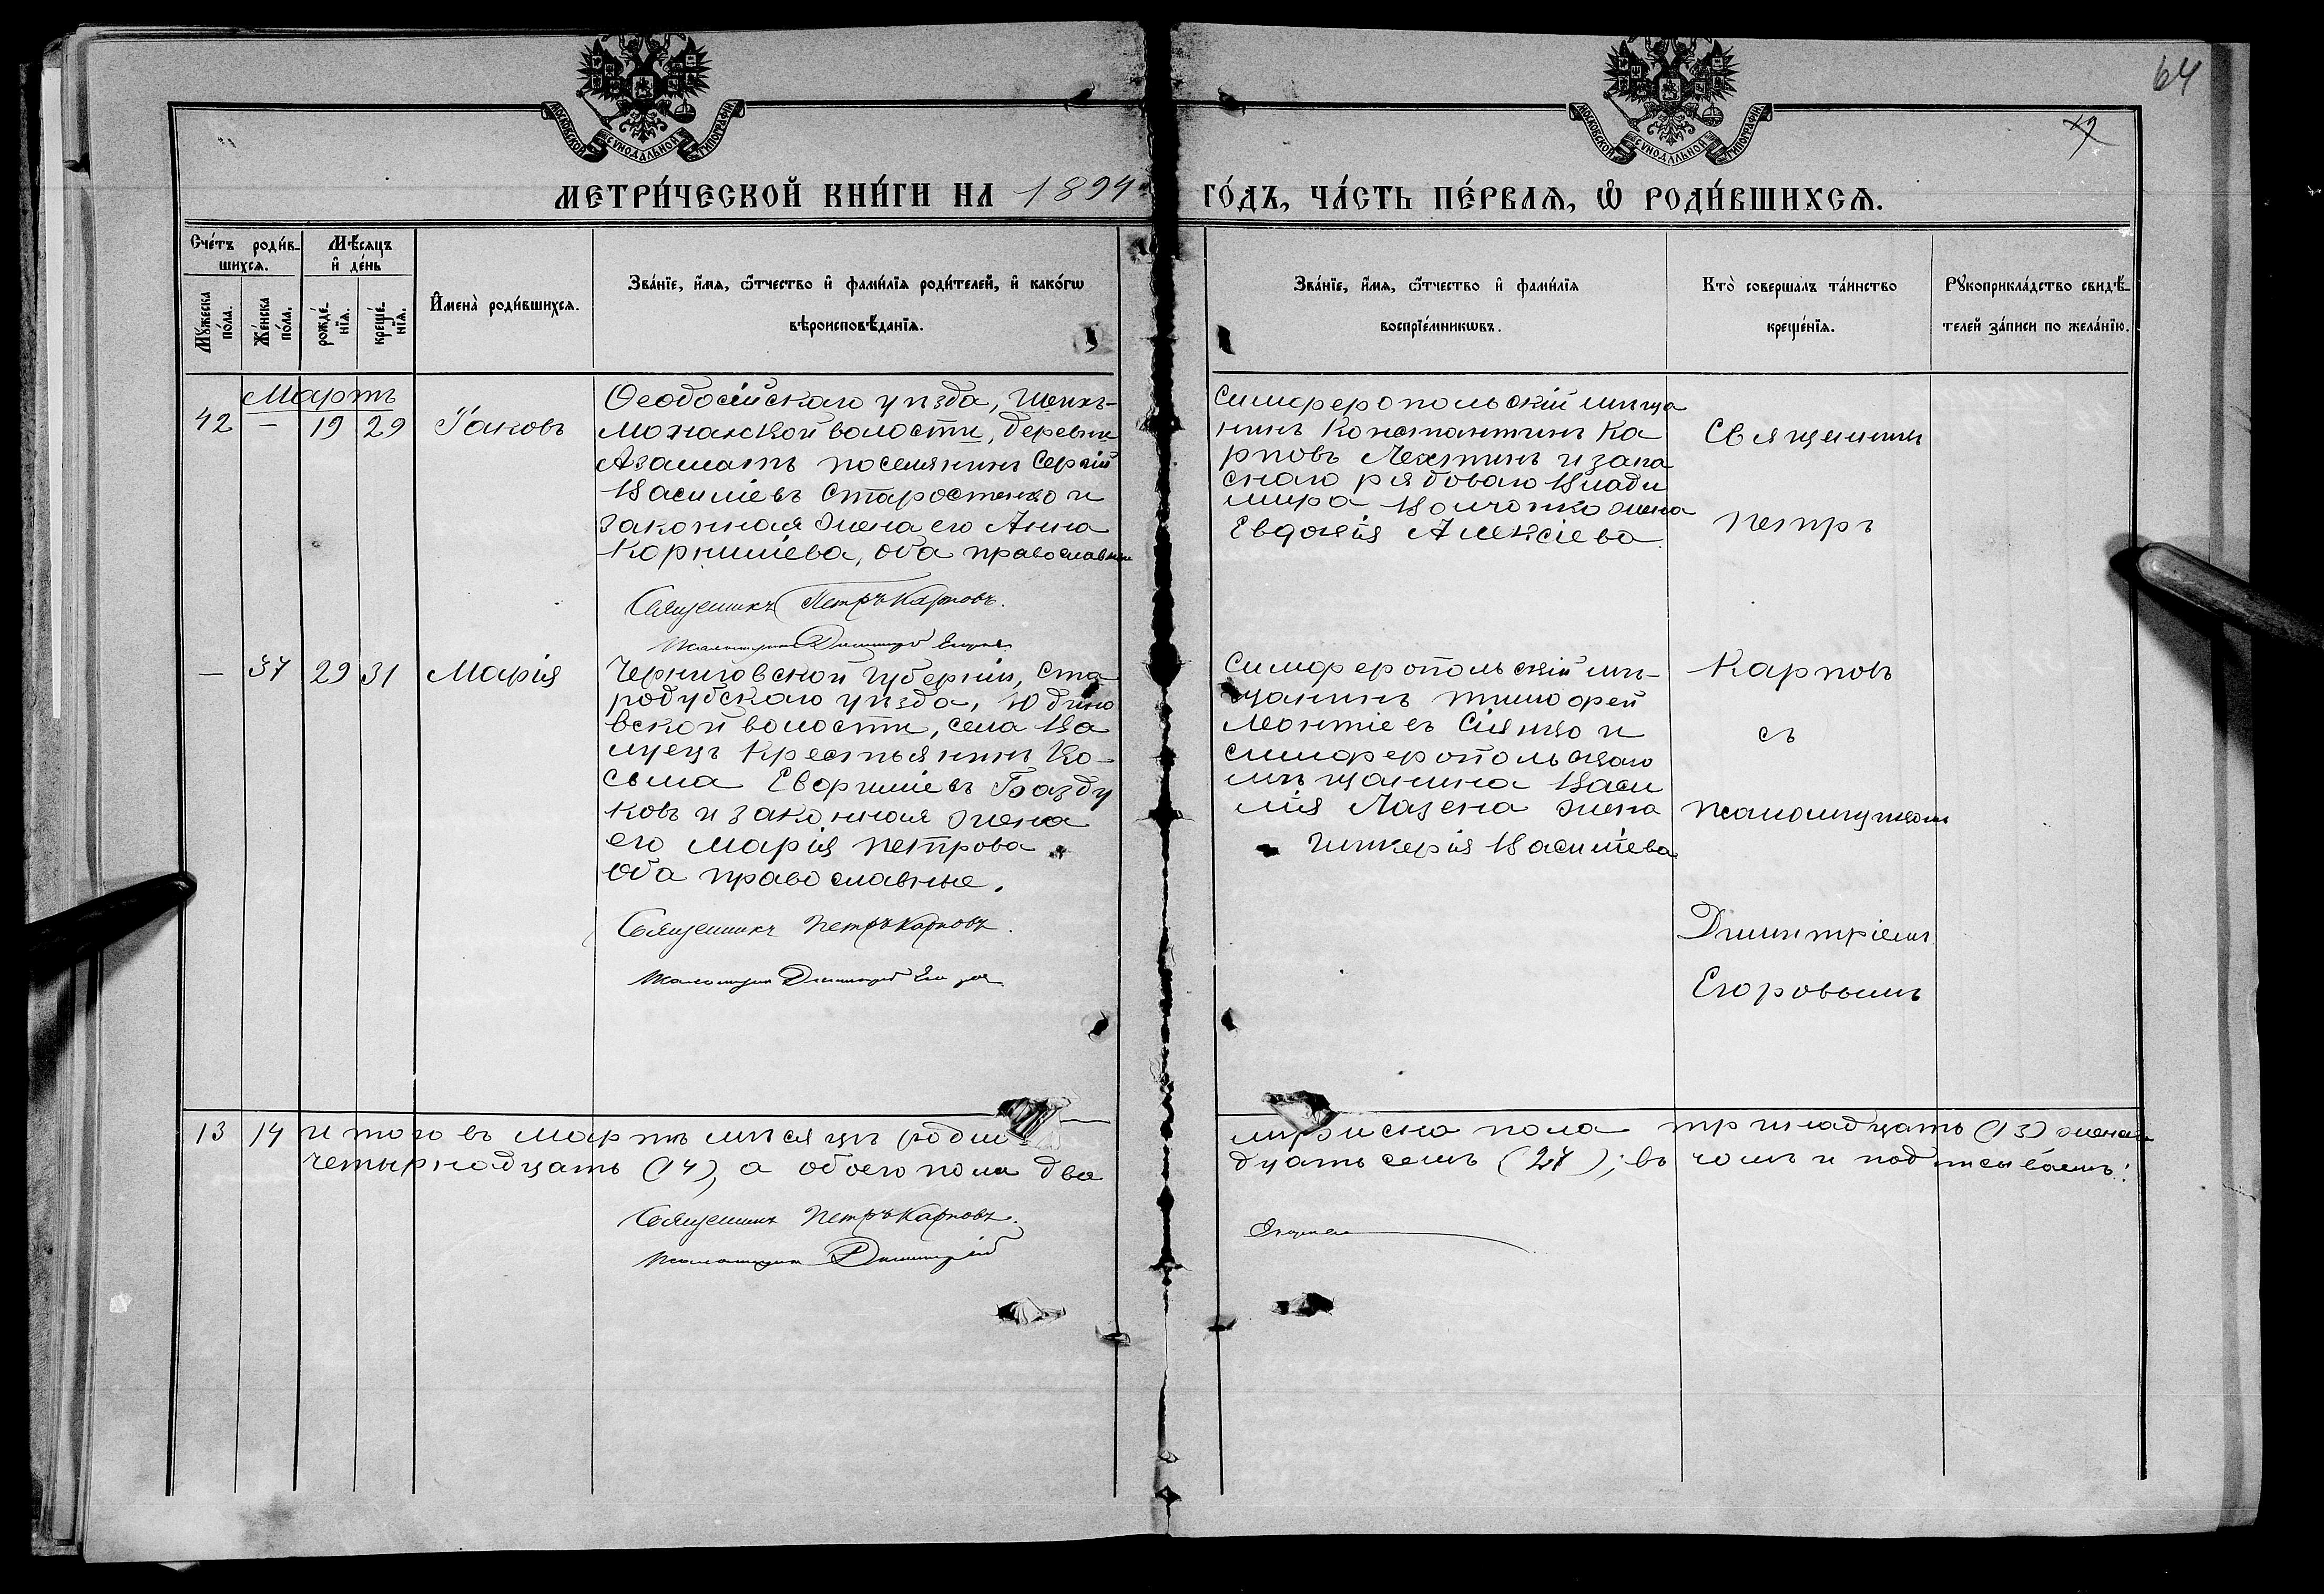 64
МОСКОВСКОЙ СѴНОДАЛЬНОЙ ТИПОГРАФІИ
МОСКОВСКОЙ СѴНОДАЛЬНОЙ ТИПОГРАФІИ
МЕТРИ́ЧЕСКОЙ КНИ́ГИ НА 1894
ГО́ДЪ, ЧА́СТЬ ПЕ́РВАѦ, Ѡ РОДИ́ВШИХСѦ.
Сче́тъ роди́в-
шихсѧ.
Мѣ́сѧцъ
и҆ де́нь
Мꙋ́жеска
по́ла.
Же́нска
по́ла.
рожде́-
нїѧ.
креще́-
нїѧ.
И҆мена̀ роди́вшихсѧ.
Зва́нїе, и҆́мѧ, ѻ҆́тчество и҆ фами́лїѧ роди́телей, и҆ како́гѡ
вѣроисповѣ́данїѧ.
Зва́нїе, и҆́мѧ, ѻ҆́тчество и҆ фами́лїѧ
воспрїе́мникѡвъ.
Кто̀ совершалъ та́инство
креще́нїѧ.
Рꙋкоприкла́дство свидѣ́-
телей за́писи по жела́нїю.
Мартъ
42 — 19 29 Іаковъ
Ѳеодосійскаго уѣзда, Шейхъ-
Монакской волости, деревни
Азаматъ поселянинъ Сергій
Василіевъ Старостенко и
законная жена его Анна
Корниліева, оба православные
Священникъ Петръ Карповъ.
Псаломщикъ Димитрій Егоровъ
Симферопольскій мѣща
нинъ Константинъ Ка
рповъ Лехтинъ и запа
снаго рядоваго Влади
мира жена
Евдокія Алексіева
Священникъ
Петръ
— 37 29 31 Марія
Черниговской губерніи, Ста
родубскаго уѣзда, Юдино
вской волости, села Ва
луецъ крестьянинъ Ко-
сьма Базду
ковъ и законная жена
его Марія Петрова
оба православные.
Священникъ Петръ Карповъ.
Псаломщикъ Димитрій Егоровъ
Симферопольскій мѣ-
щанинъ Тимофей
Леонтіевъ и
симферопольскаго
мѣщанина Васи
лія жена
Гликерія Василіева
Карповъ
съ
псаломщикомъ
Димитріемъ
Егоровымъ
13 14 Итого въ Мартѣ мѣсяцѣ родил
мужеска пола тринадцать (13) женска
четырнадцать (14), а обоего пола два
дцать семь (27); въ чемъ и подписываемъ:
Священникъ Петръ Карповъ.
Псаломщикъ Димитрій
Егоровъ